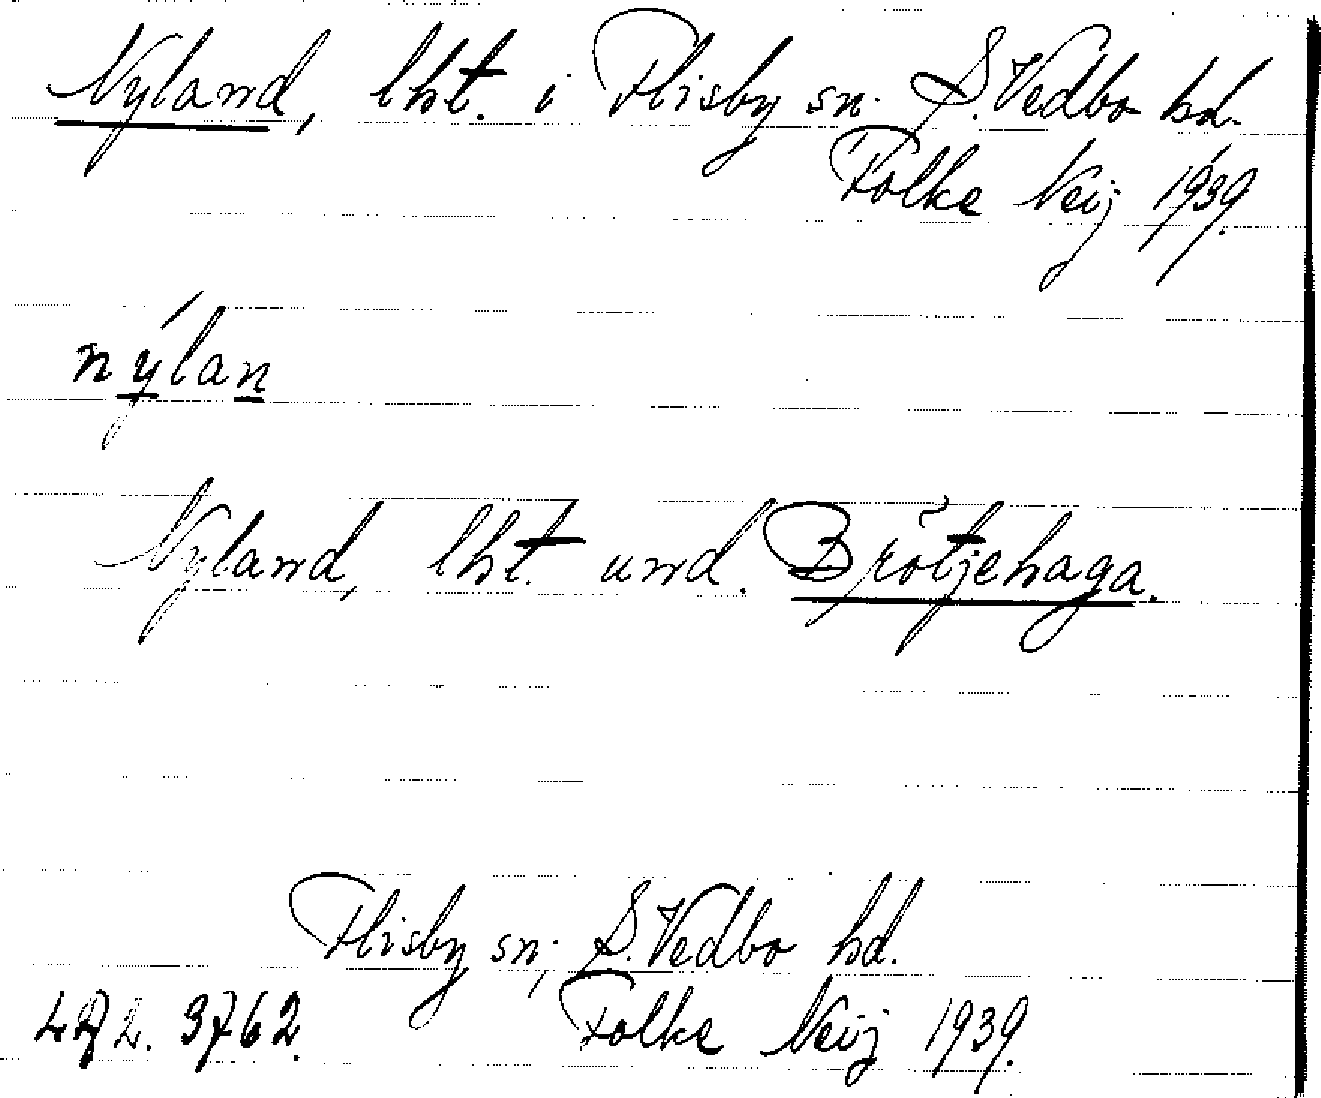 Nyland, lht. i Flisby sn. S. Vedbo hd.
Folke Neij 1939.
nýlan
Nyland, lht. und. Brötjehaga.
Flisby sn; S. Vedbo hd.
3762. Folke Neij 1939.